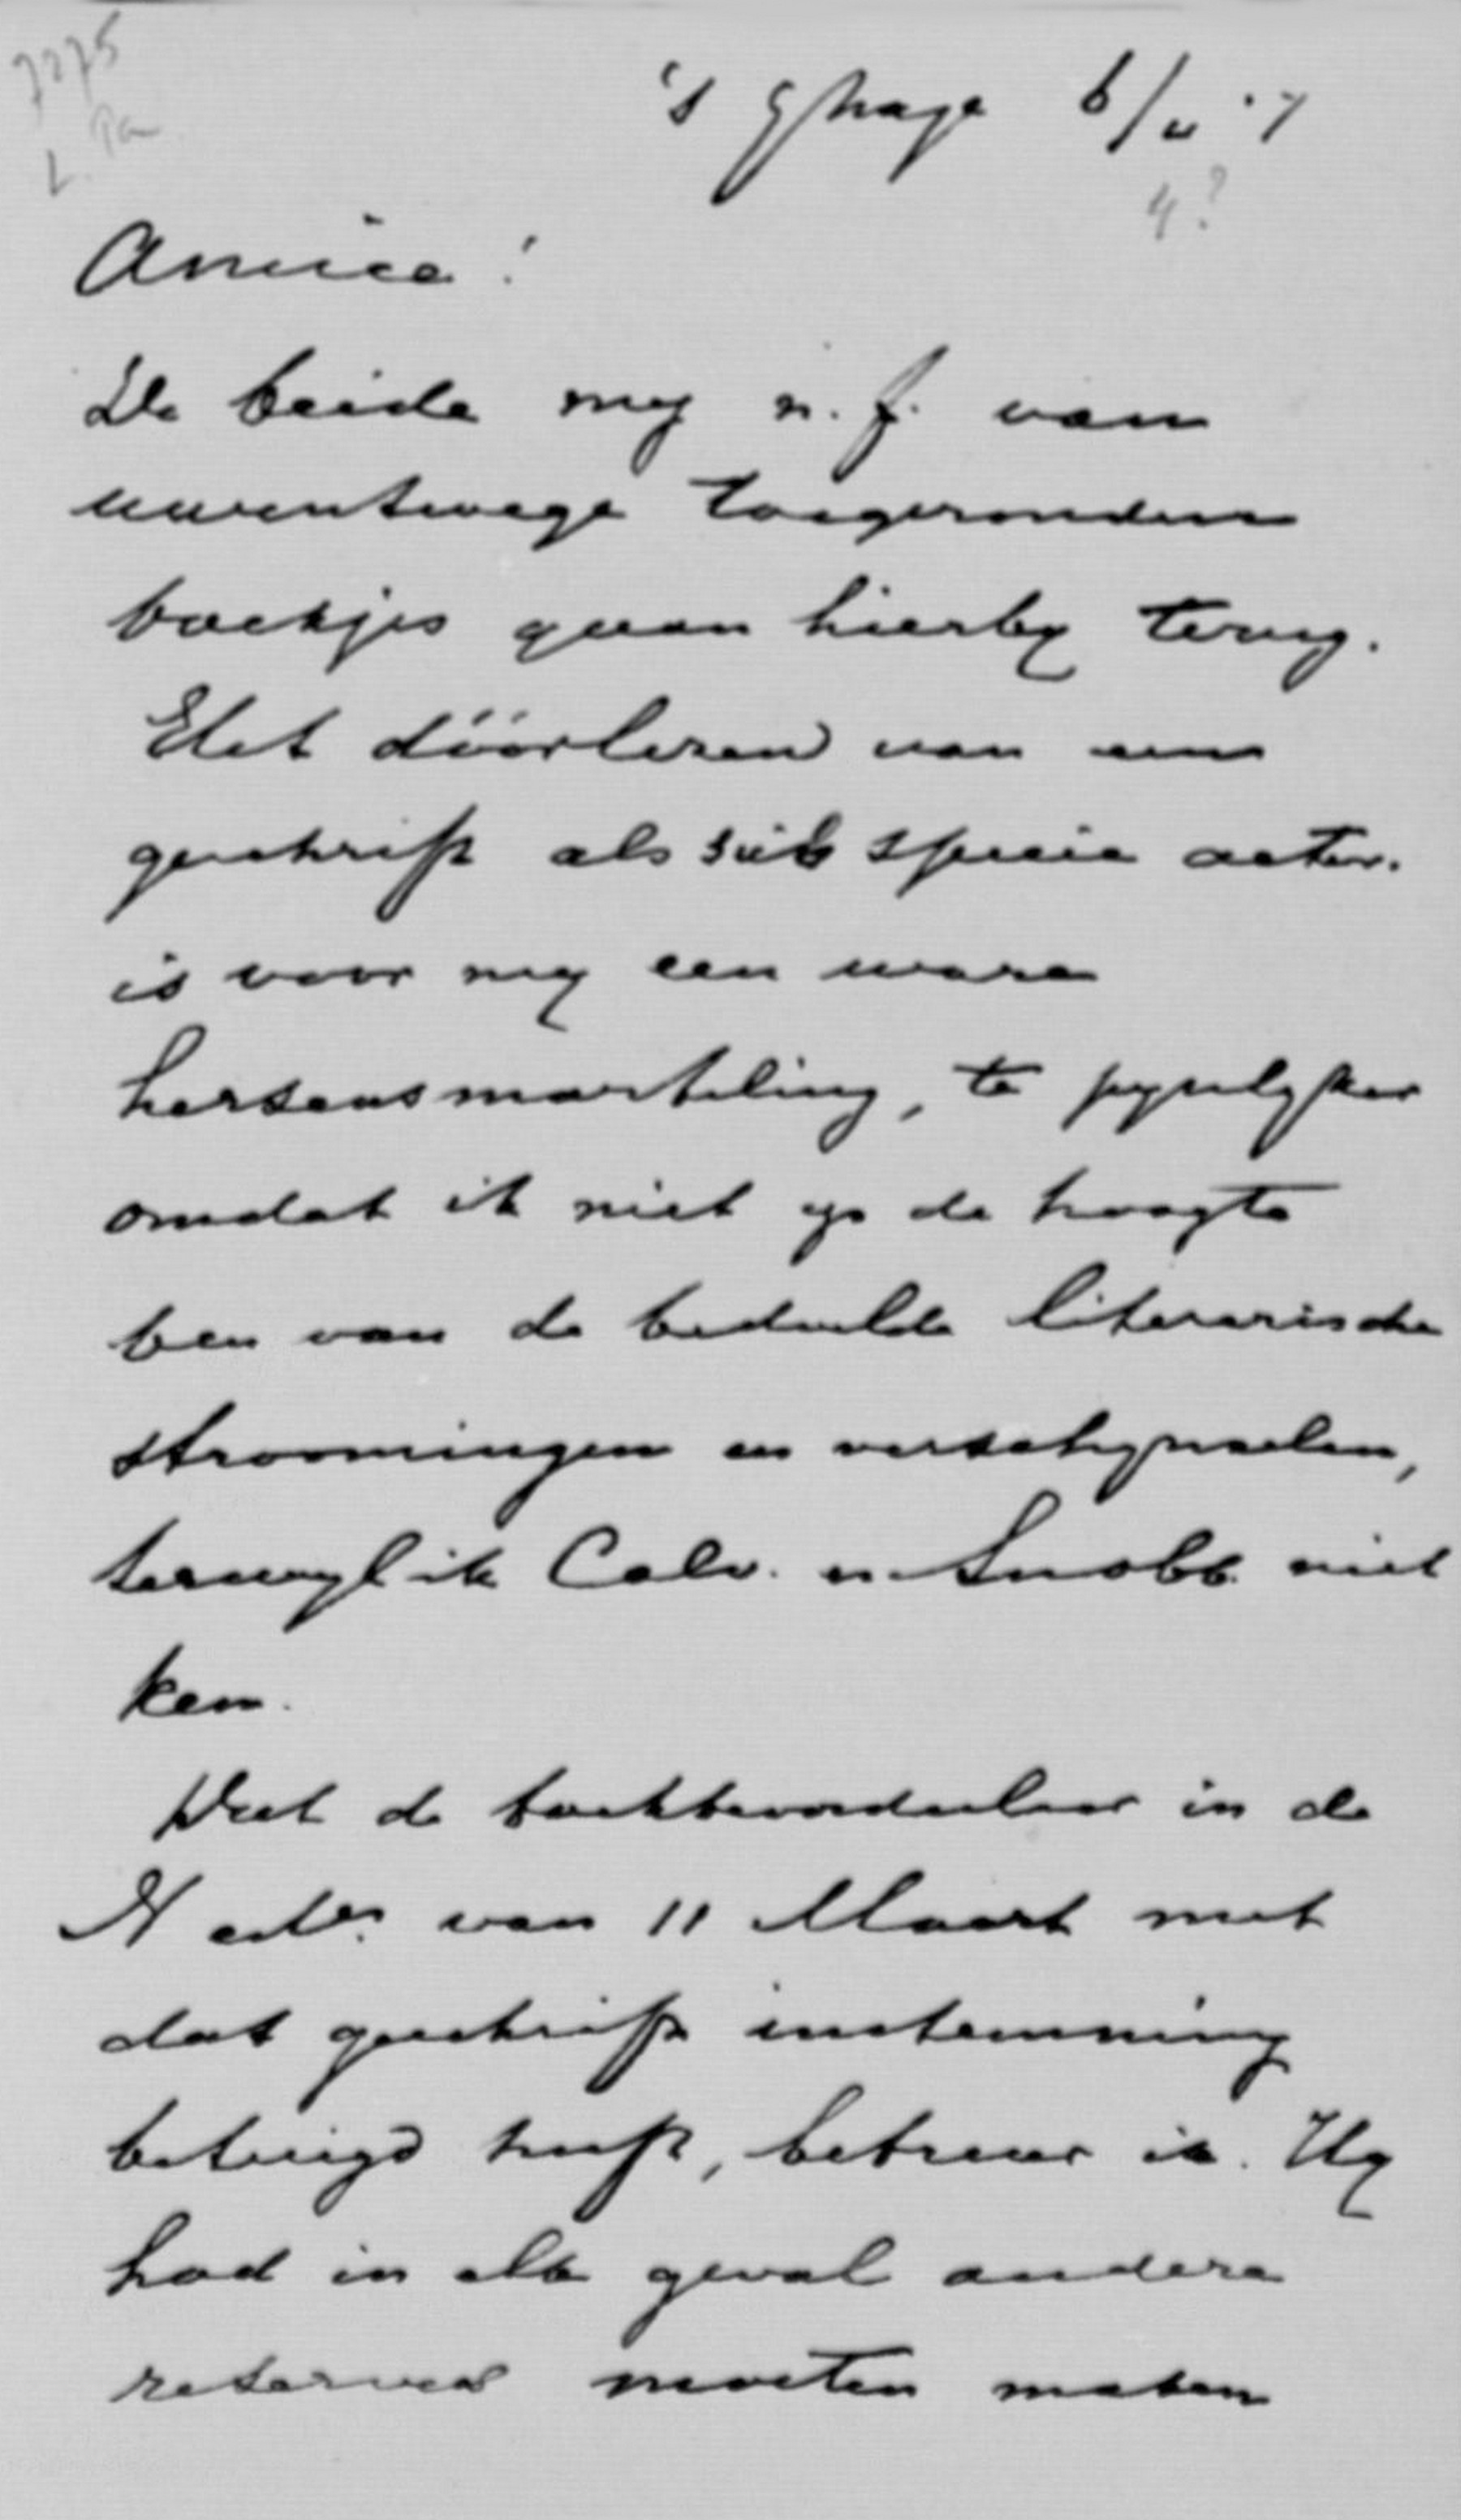 7275
L. Pa
's Ghage 6/4 '7
4?
Amice!
De beide mij n. f. van
uwentwege toegezonden
boekjes gaan hierbij terug.
Het dóórlezen van een
geschrift als sub specie aeter.
is voor mij een ware
hersensmarteling, te pijnlijker
omdat ik niet op de hoogte
ben van de bedoelde literarische
stroomingen en verschijnselen,
terwijl ik Calv. en Snobb. niet
ken.
Dat de boekbeoordeelaar in de
Nedr. van 11 Maart met
dat geschrift instemming
betuigd heeft, betreur ik. Hij
had in elk geval andere
reserves moeten maken